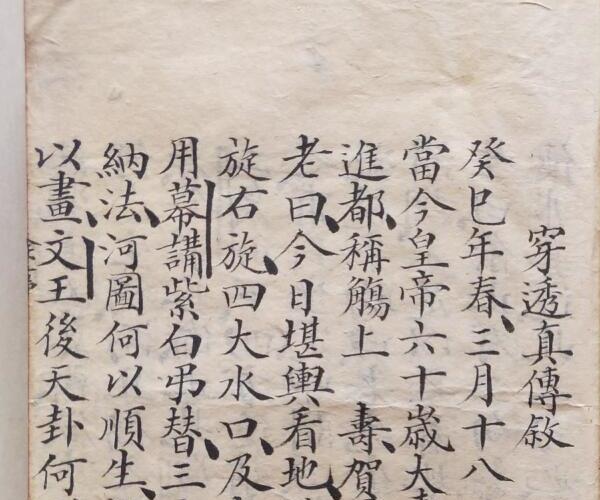 穿透真傳敘
癸巳年春三月十八
當今皇帝六十歲大
進都稱觴上 壽賀
老曰今日堪輿看地
旋右旋四大水口及
用幕講紫白弔替三
納法河圖何以順生
以畫文王後天卦何